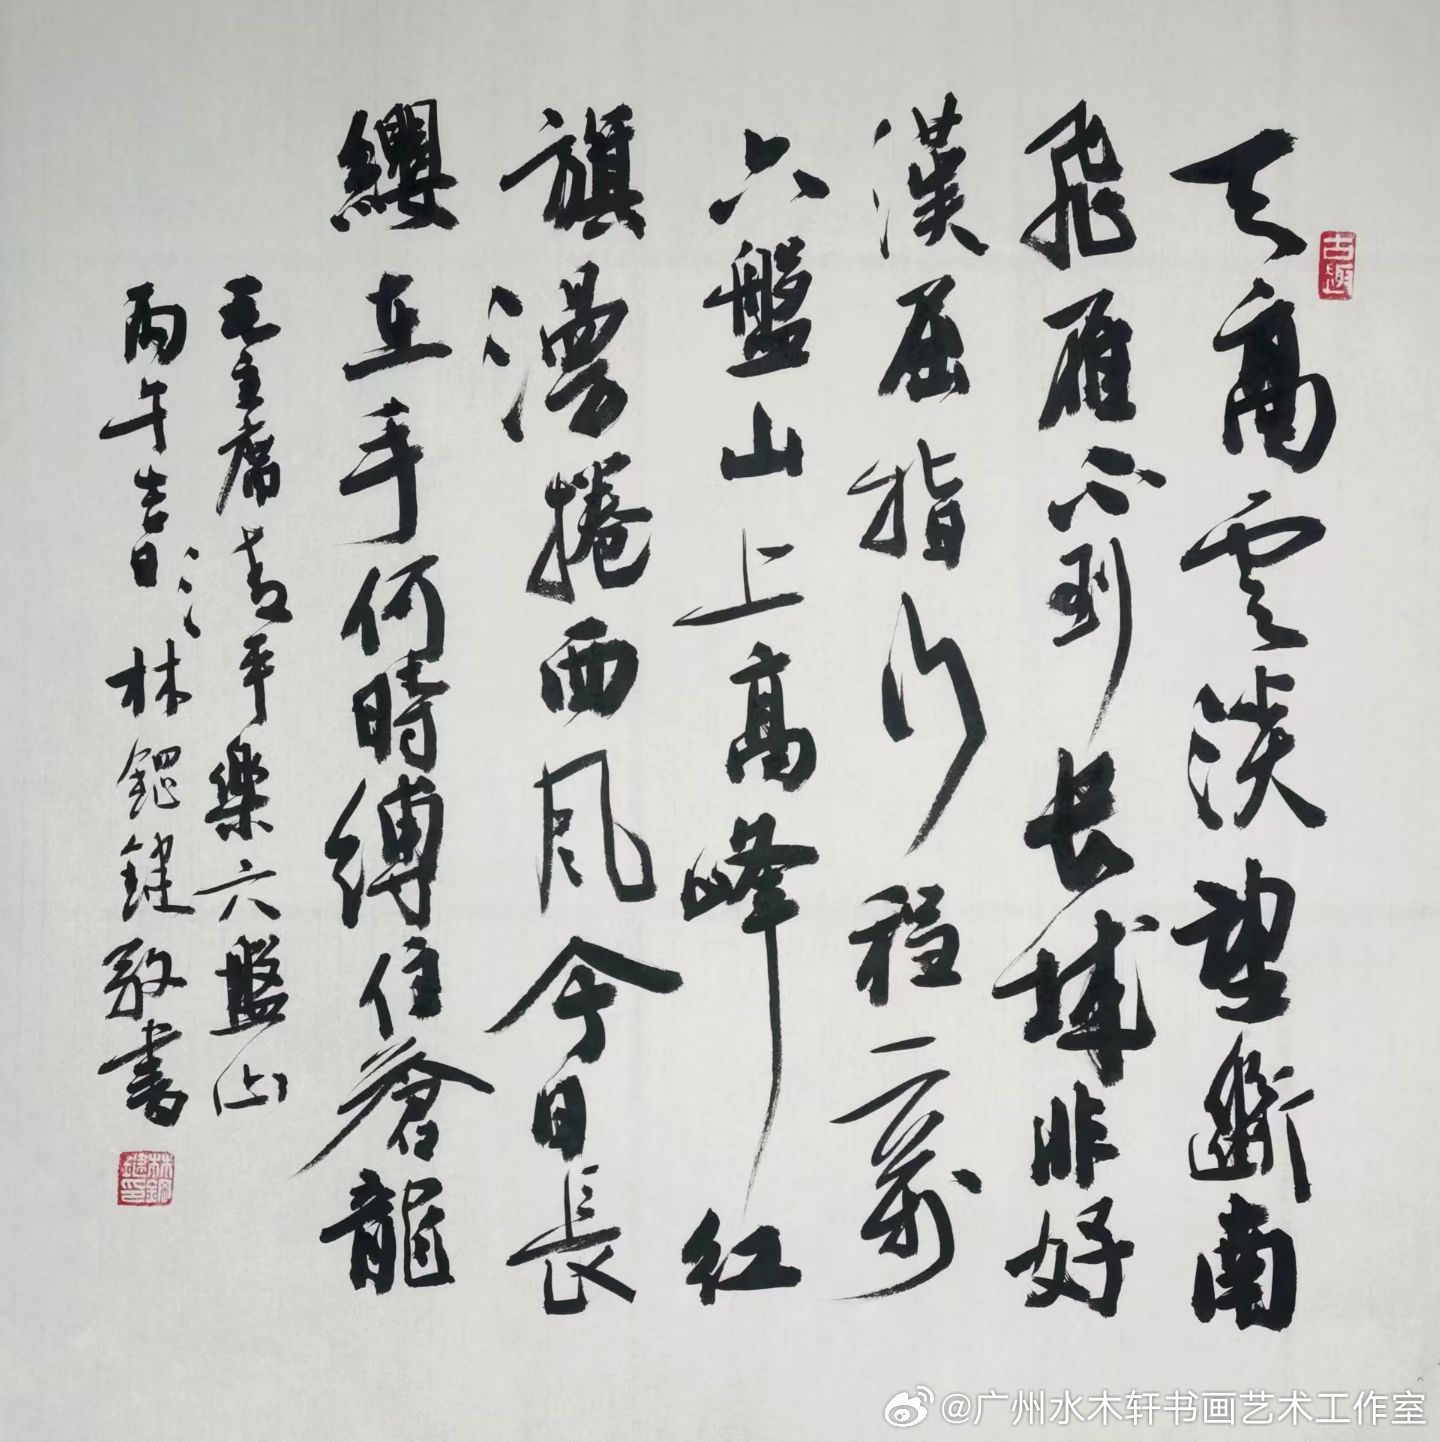 古趣
天高雲淡望斷南
飛雁不到長城非好
漢屈指行程二萬
六盤山上高峰紅
旗漫捲西风今日長
纓在手何時縛住蒼龍
毛主席清平樂六盤山
丙午吉日 林 鍵敬書
@广州水木轩书画艺术工作室